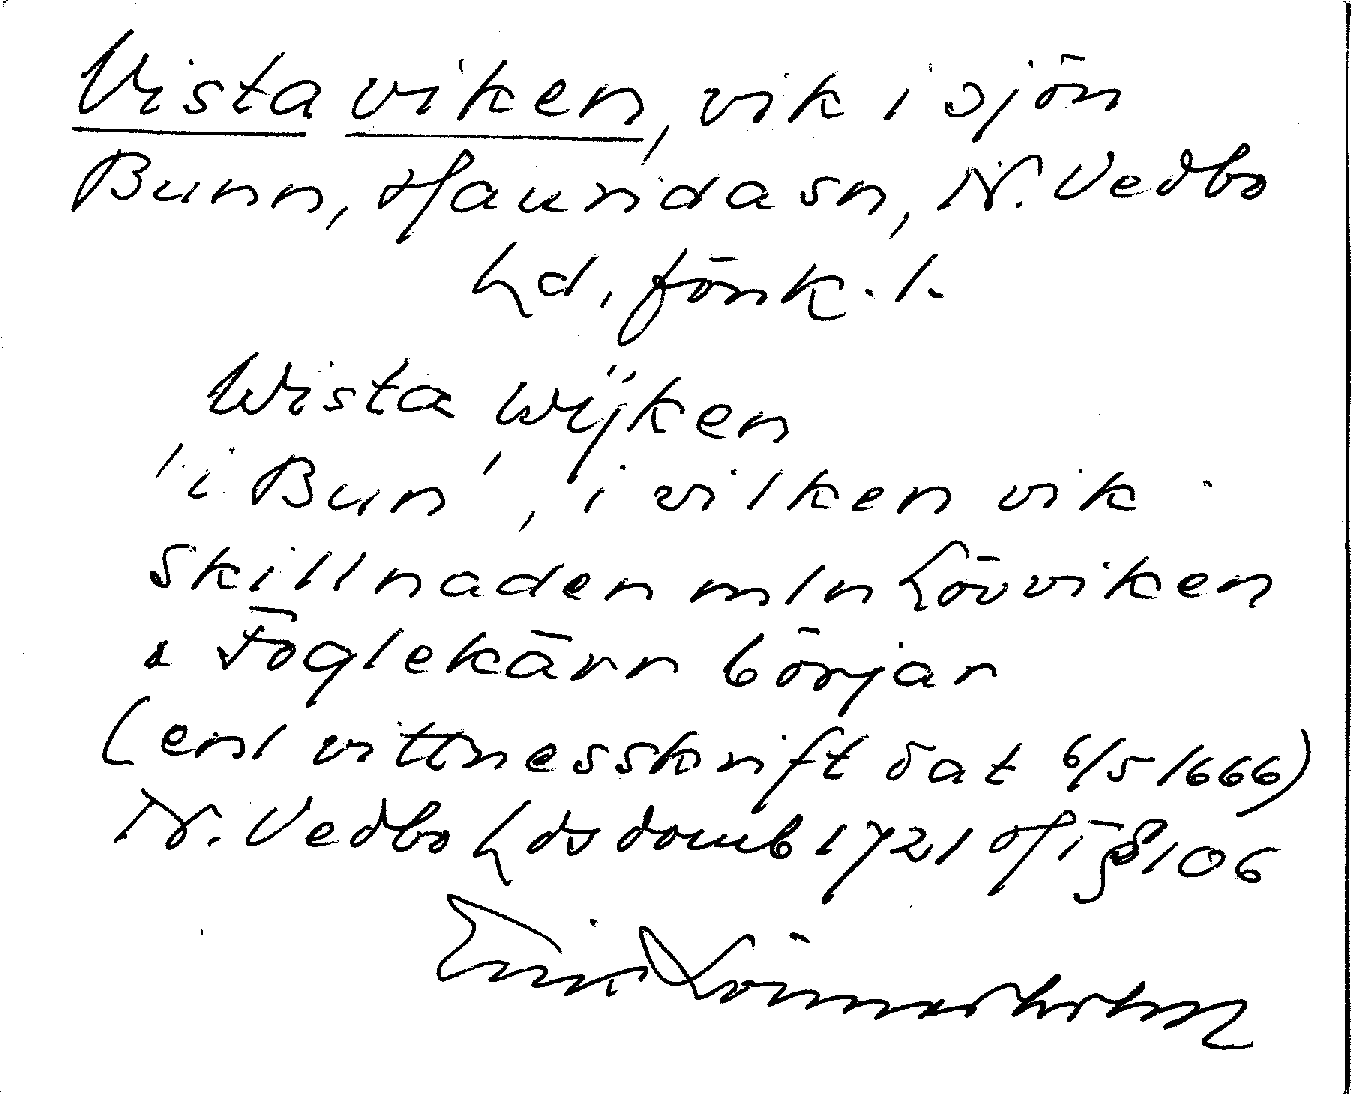 Vista viken, vik i sjön
Bunn, Haurida sn, N. Vedbo
hd, Jönk. l.
Wista Wijken
'i Bun', i vilken vik
skillnaden mln Lövviken
& Föglekärr börjar
(enl vittnesskrift dat 6/5 1666)
N. Vedbo hds domb 1721 § 106
Erik Lönnerholm